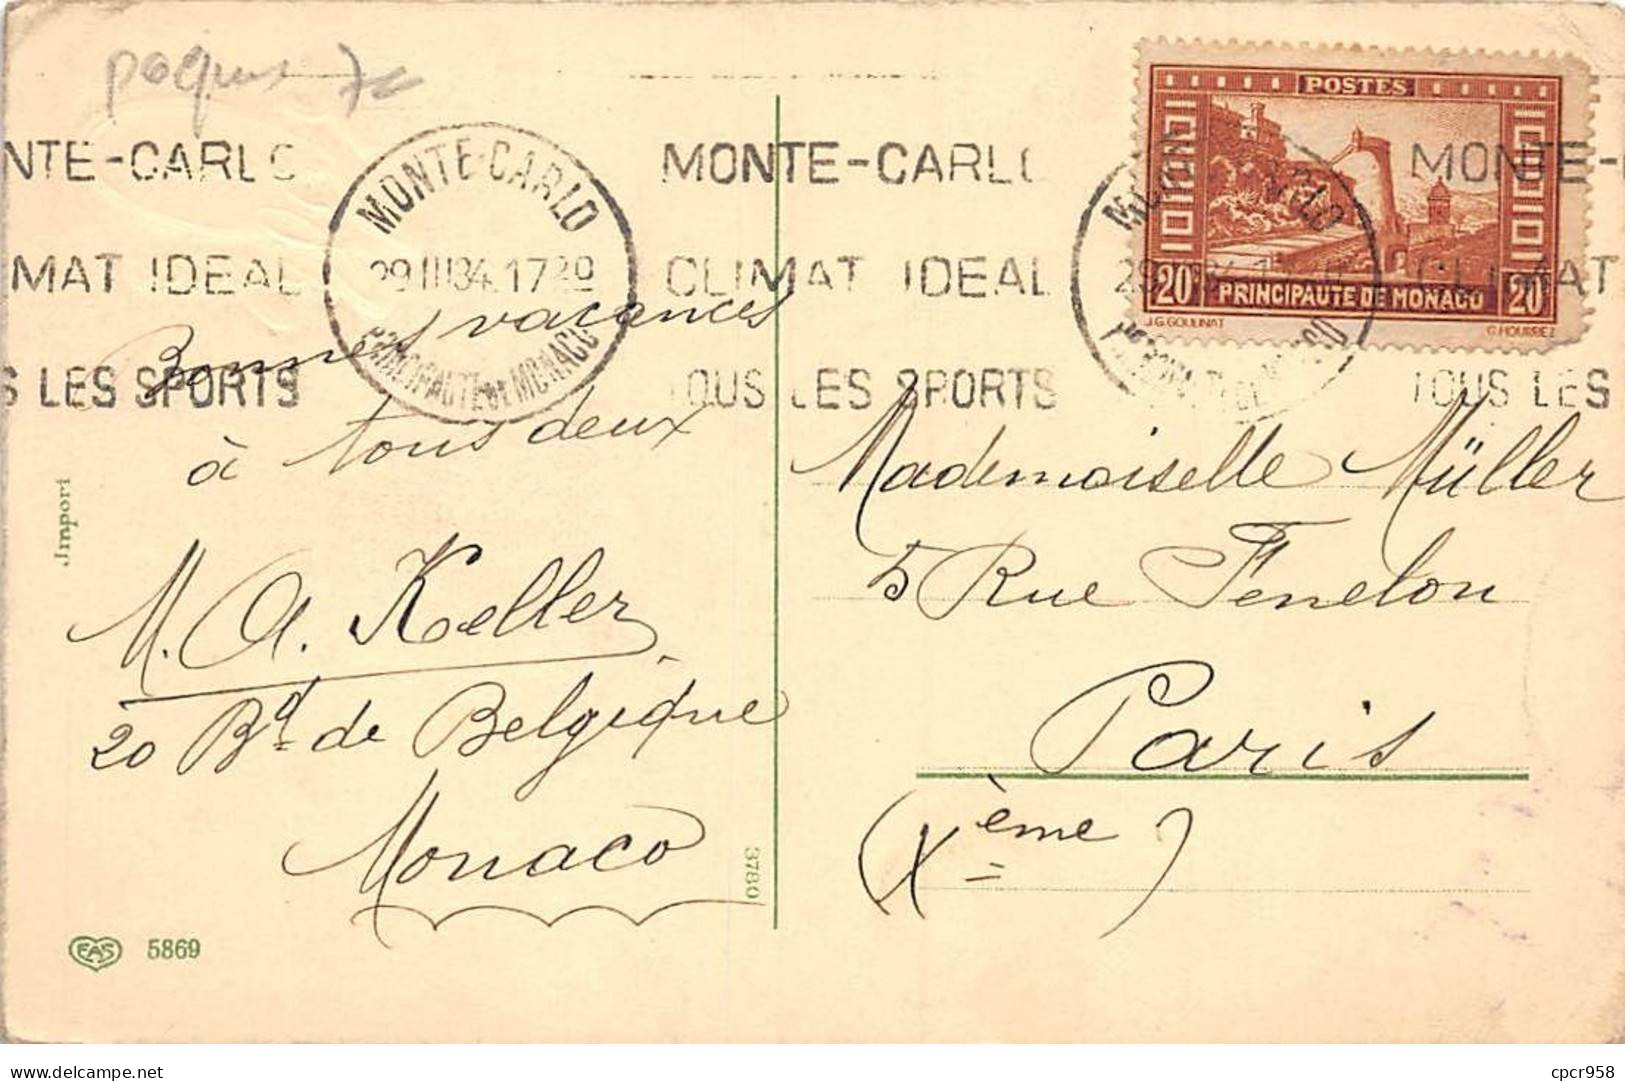 MONTE-CARLO
29 III 34 17
PRINCIPAUTE DE MONACO
NTE-CARLO
MAT IDEAL
S LES SPORTS
MONTE-CARLO
CLIMAT IDEAL
TOUS LES SPORTS
MONTE-
CLIMAT
TOUS LES
POSTES
20c PRINCIPAUTE DE MONACO 20c
J.G. GOULINAT
Bonnes vacances
à tous deux
M. A. Keller
20 Bd de Belgique
Monaco
Import
3780
EAS 5869
Mademoiselle Müller
5 Rue Fenelon
Paris
(Xème)
cpcr958